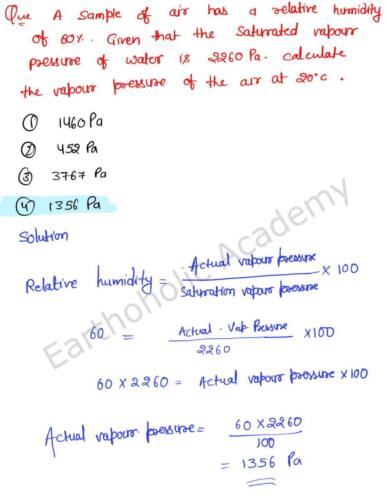 Que A sample of air has a relative humidity
of 60%. Given that the Saturated vapour
pressure of water is 2260 Pa. calculate
the vapour pressure of the air at 20°C.
① 1460 Pa
② 452 Pa
③ 3767 Pa
④ 1356 Pa
Solution
Relative humidity = Actual vapour pressure / Saturation vapour pressure × 100
60 = Actual. Vap. Pressure / 2260 × 100
60 × 2260 = Actual vapour pressure × 100
Actual vapour pressure = 60 × 2260 / 100
= 1356 Pa
Earthoholic Academy